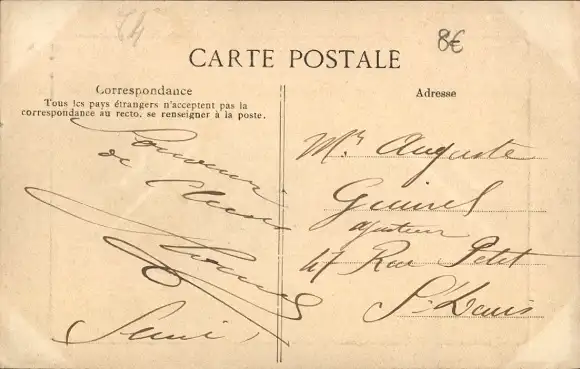 8€
CARTE POSTALE
Correspondance
Tous les pays étrangers n'acceptent pas la
correspondance au recto, se renseigner à la poste.
Souvenir
de
Adresse
Mr Auguste
Guinel
Ajusteur
47 Rue Petit
St Denis